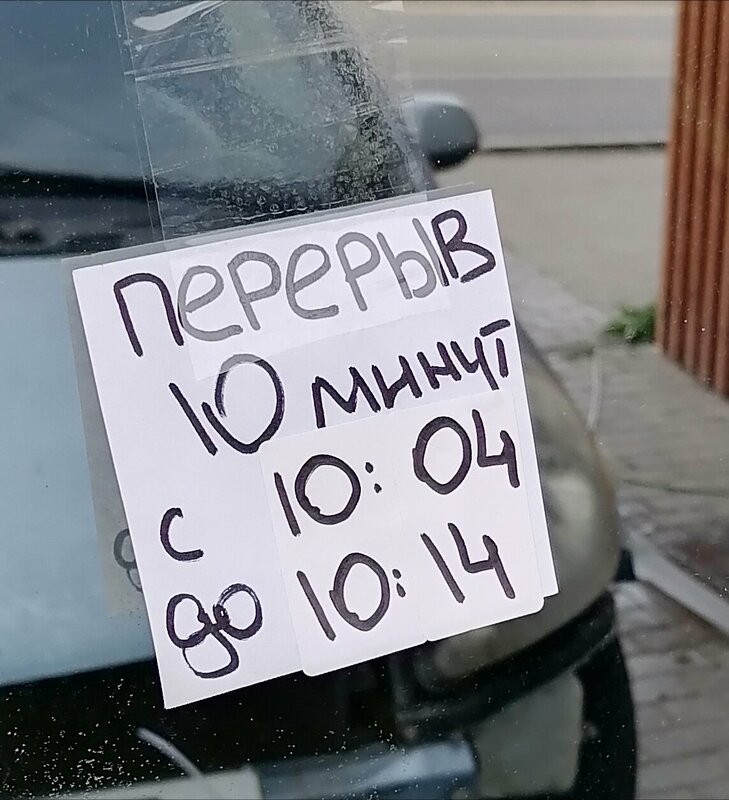 ПЕРЕРЫВ
10 минут
с 10:04
до 10:14